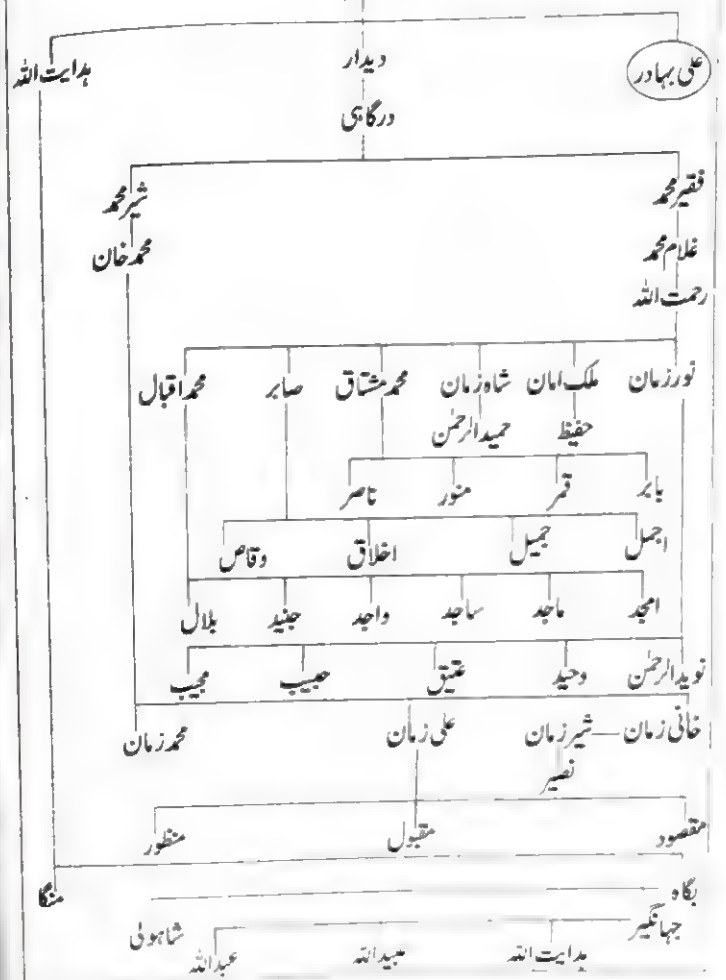 علی بہادر دیدار ہدایت اللہ
درگاہی
فقیر محمد شیر محمد
غلام محمد محمد خان
رحمت اللہ
نور زمان ملک امان شاہ زمان محمد مشتاق صابر محمد اقبال
حفیظ حمید الرحمٰن
بابر قمر منور ناصر
اجمل جمیل اخلاق وقاص
امجد ماجد ساجد واجد جنید بلال
نوید الرحمٰن وحید عتیق حبیب مجیب
خانی زمان شیر زمان علی زمان محمد زمان
نصیر
مقصود مقبول منظور
بگاہ منگا
جہانگیر شاہولی
ہدایت اللہ عبید اللہ عبد اللہ